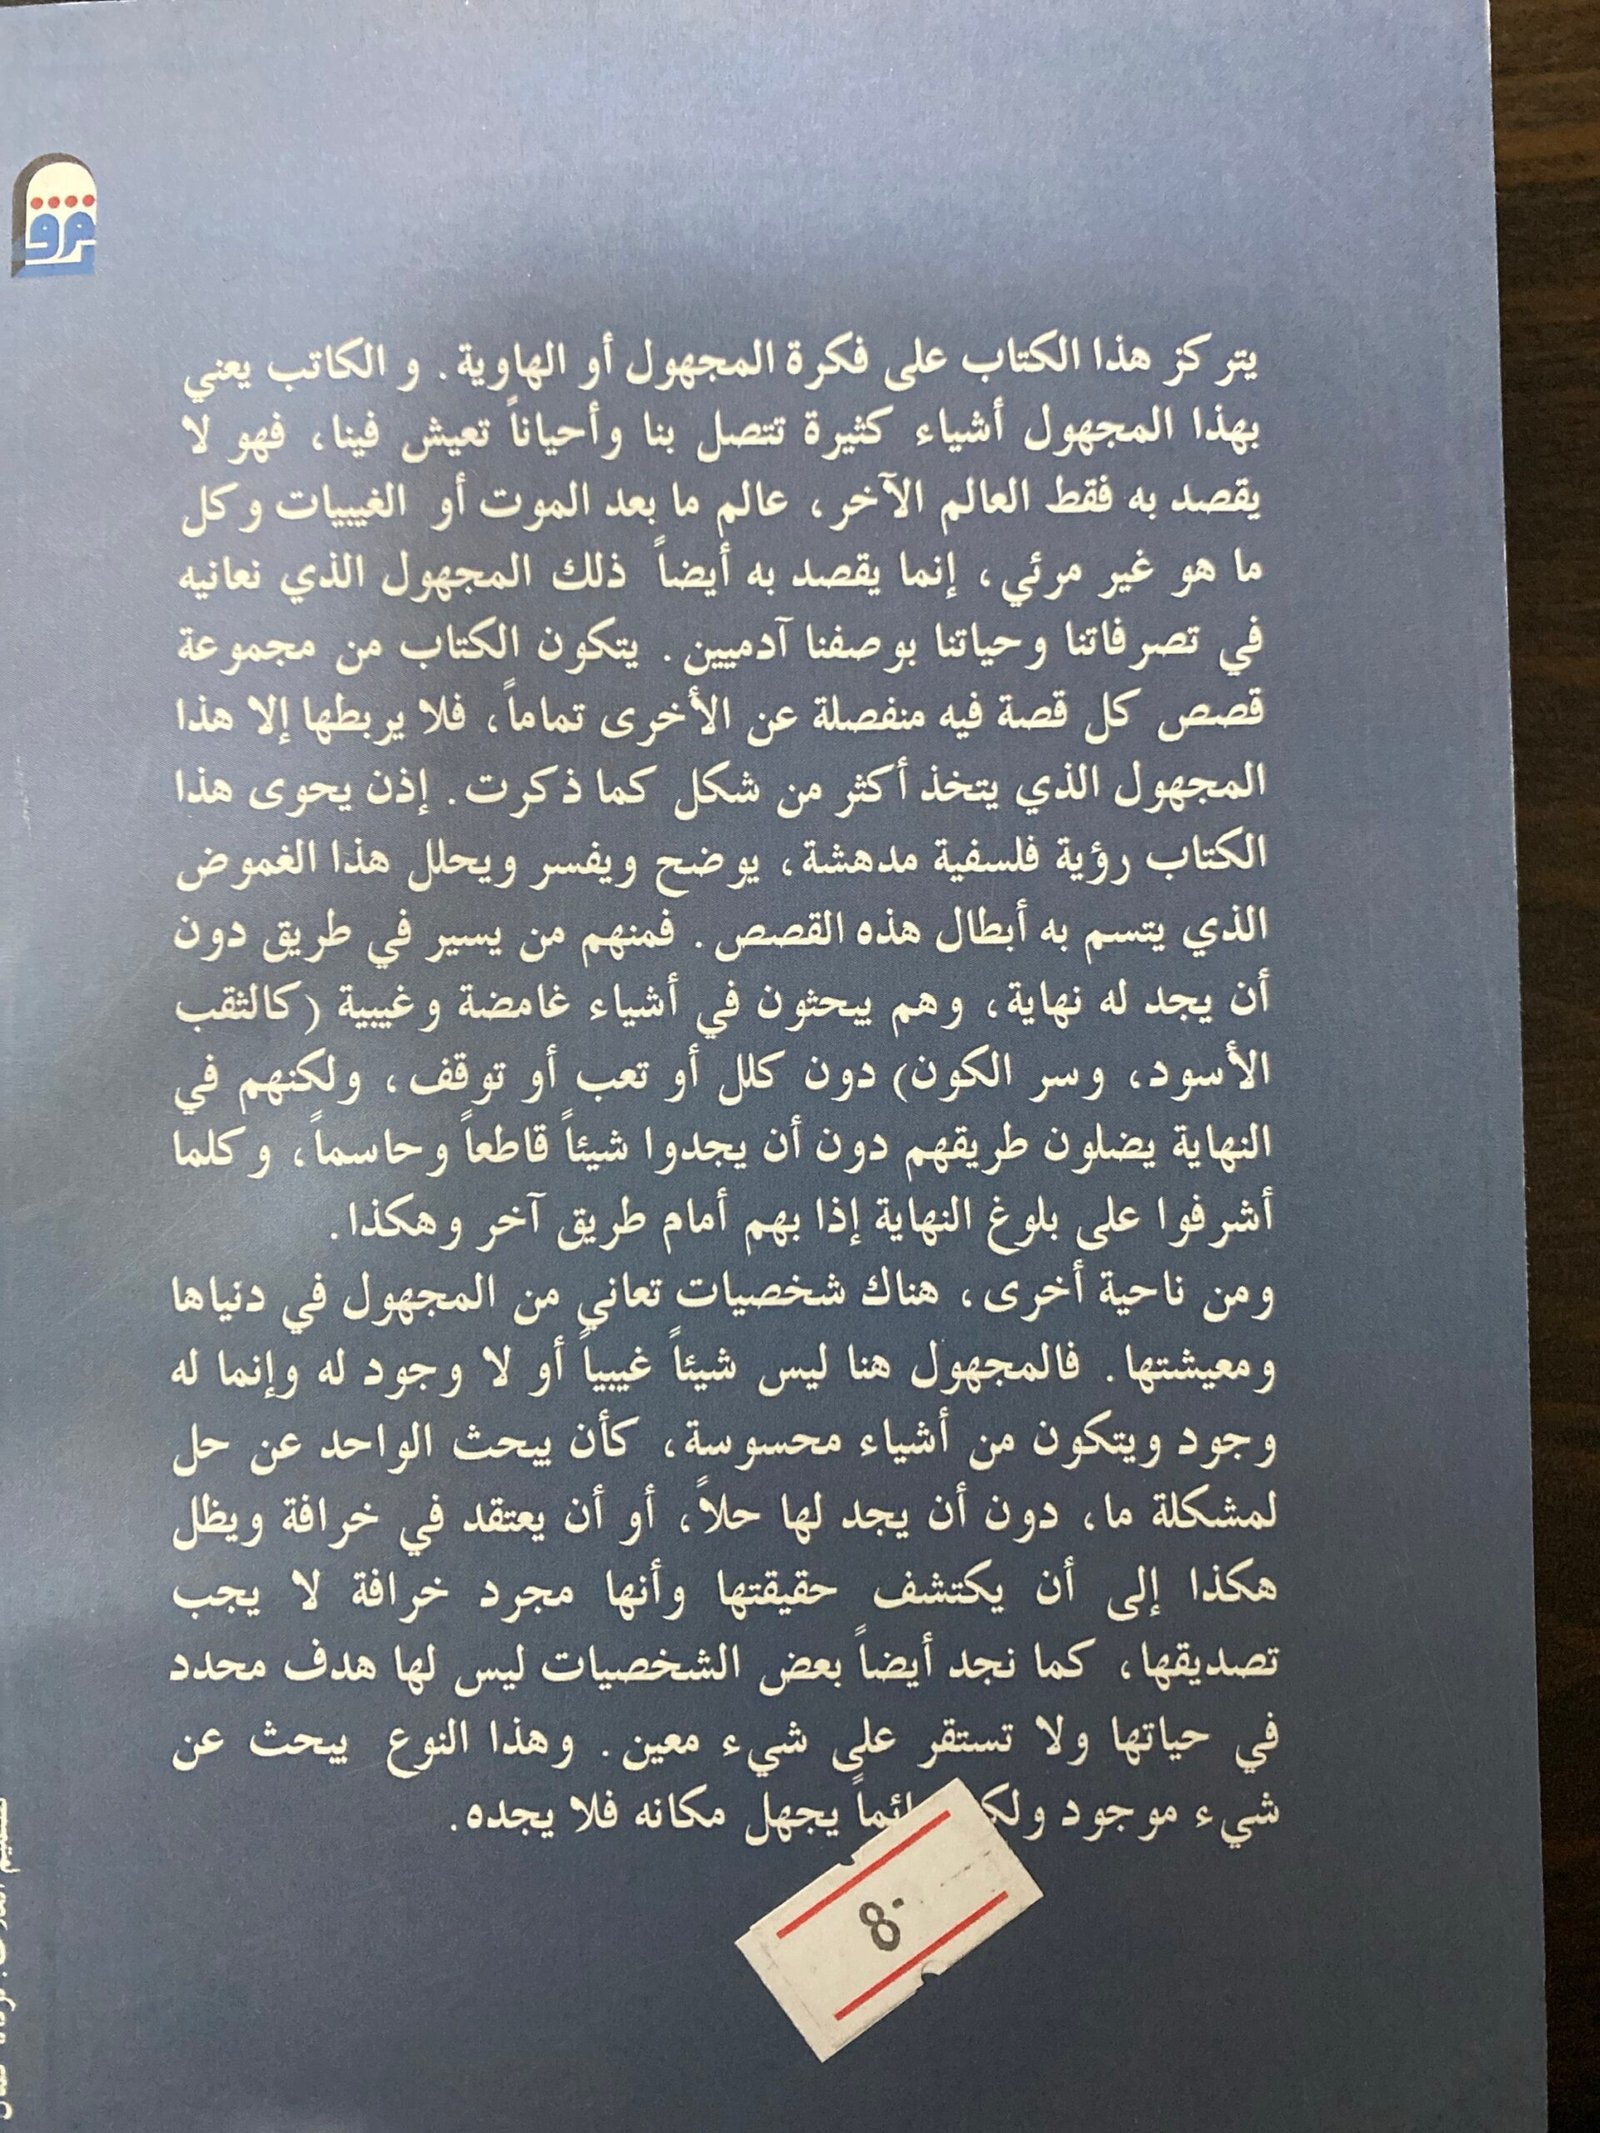 يتركز هذا الكتاب على فكرة المجهول أو الهاوية. و الكاتب يعني
بهذا المجهول أشياء كثيرة تتصل بنا وأحياناً تعيش فينا، فهو لا
يقصد به فقط العالم الآخر، عالم ما بعد الموت أو الغيبيات وكل
ما هو غير مرئي، إنما يقصد به أيضاً ذلك المجهول الذي نعانيه
في تصرفاتنا وحياتنا بوصفنا آدميين. يتكون الكتاب من مجموعة
قصص كل قصة فيه منفصلة عن الأخرى تماماً، فلا يربطها إلا هذا
المجهول الذي يتخذ أكثر من شكل كما ذكرت. إذن يحوى هذا
الكتاب رؤية فلسفية مدهشة، يوضح ويفسر ويحلل هذا الغموض
الذي يتسم به أبطال هذه القصص. فمنهم من يسير في طريق دون
أن يجد له نهاية، وهم يبحثون في أشياء غامضة وغيبية (كالثقب
الأسود، وسر الكون) دون كلل أو تعب أو توقف، ولكنهم في
النهاية يضلون طريقهم دون أن يجدوا شيئاً قاطعاً وحاسماً، وكلما
أشرفوا على بلوغ النهاية إذا بهم أمام طريق آخر وهكذا.
ومن ناحية أخرى، هناك شخصيات تعاني من المجهول في دنياها
ومعيشتها. فالمجهول هنا ليس شيئاً غيبياً أو لا وجود له وإنما له
وجود ويتكون من أشياء محسوسة، كأن يبحث الواحد عن حل
لمشكلة ما، دون أن يجد لها حلاً، أو أن يعتقد في خرافة ويظل
هكذا إلى أن يكتشف حقيقتها وأنها مجرد خرافة لا يجب
تصديقها، كما نجد أيضاً بعض الشخصيات ليس لها هدف محدد
في حياتها ولا تستقر على شيء معين. وهذا النوع يبحث عن
شيء موجود يجهل مكانه فلا يجده.
8.